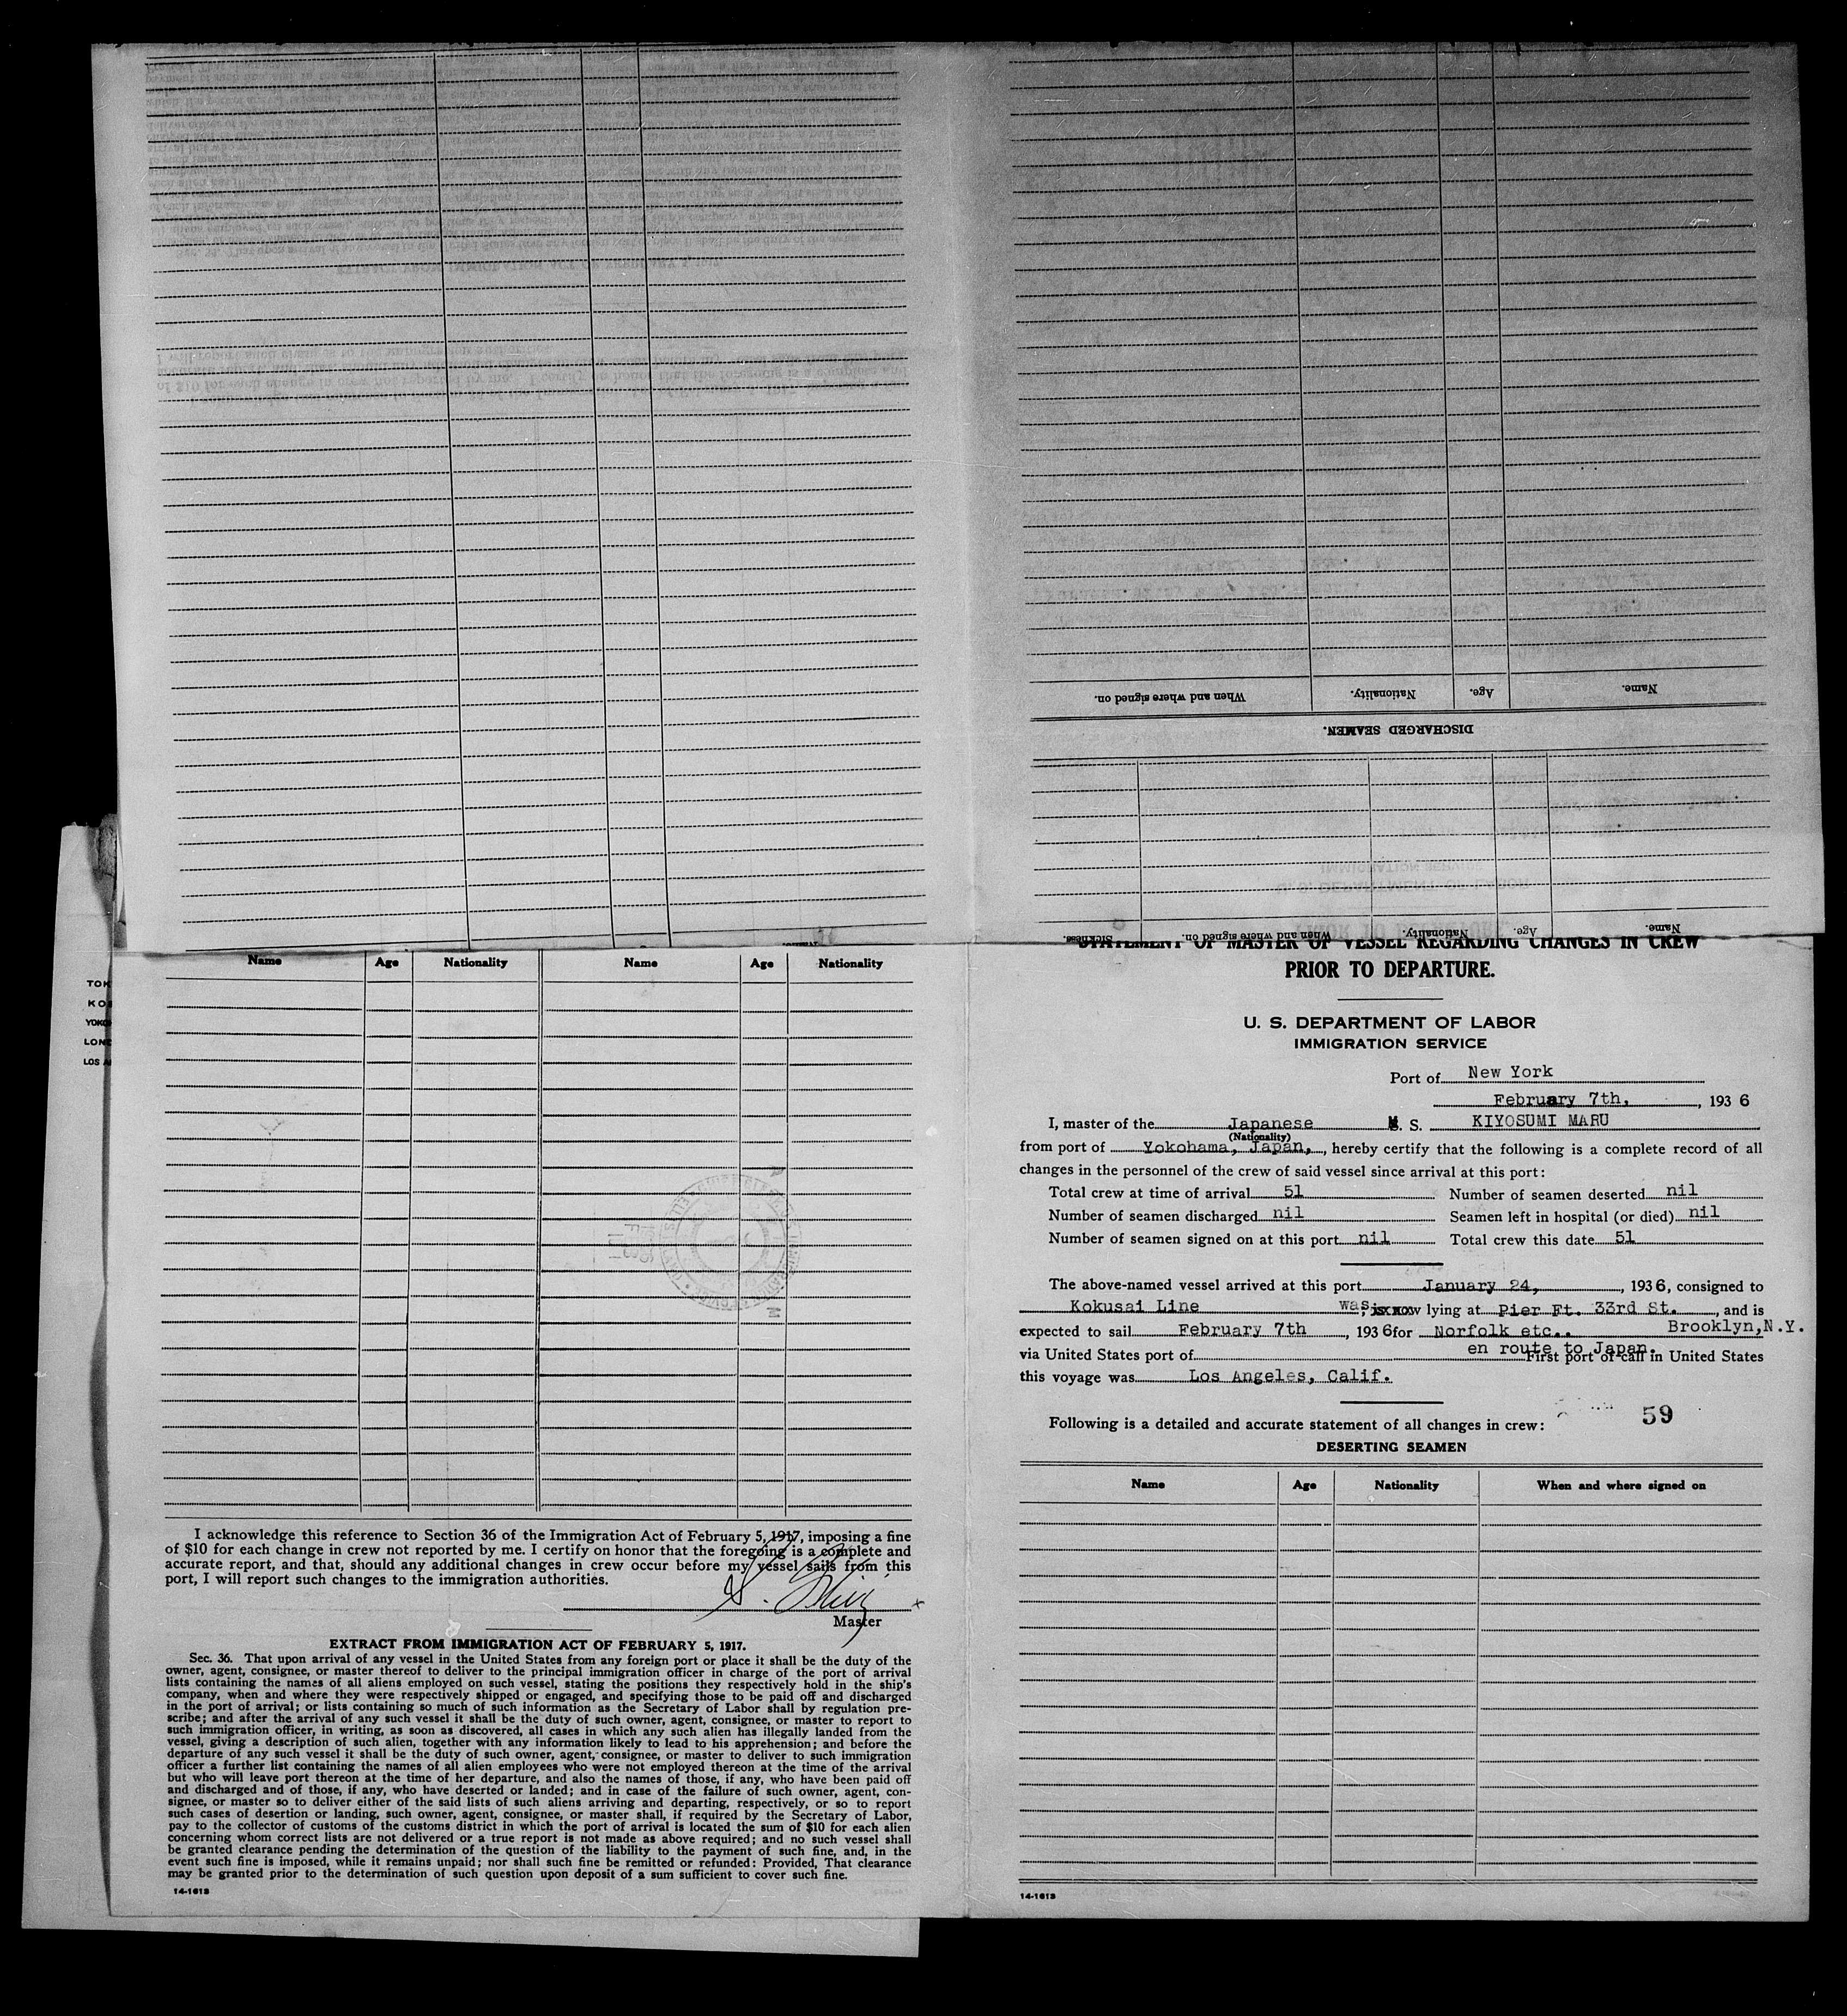 Name. Age. Nationality. When and where signed on.
DISCHARGED SEAMEN.
Name. Age. Nationality. When and where signed on. Sickness.
TOK
KO
YOKO
LON
LOS A
Name Age Nationality Name Age Nationality
I acknowledge this reference to Section 36 of the Immigration Act of February 5, 1917, imposing a fine
of $10 for each change in crew not reported by me. I certify on honor that the foregoing is a complete and
accurate report, and that, should any additional changes in crew occur before my vessel sails from this
port, I will report such changes to the immigration authorities.
Master
EXTRACT FROM IMMIGRATION ACT OF FEBRUARY 5, 1917.
Sec. 36. That upon arrival of any vessel in the United States from any foreign port or place it shall be the duty of the
owner, agent, consignee, or master thereof to deliver to the principal immigration officer in charge of the port of arrival
lists containing the names of all aliens employed on such vessel, stating the positions they respectively hold in the ship's
company, when and where they were respectively shipped or engaged, and specifying those to be paid off and discharged
in the port of arrival; or lists containing so much of such information as the Secretary of Labor shall by regulation pre-
scribe; and after the arrival of any such vessel it shall be the duty of such owner, agent, consignee, or master to report to
such immigration officer, in writing, as soon as discovered, all cases in which any such alien has illegally landed from the
vessel, giving a description of such alien, together with any information likely to lead to his apprehension; and before the
departure of any such vessel it shall be the duty of such owner, agent, consignee, or master to deliver to such immigration
officer a further list containing the names of all alien employees who were not employed thereon at the time of the arrival
but who will leave port thereon at the time of her departure, and also the names of those, if any, who have been paid off
and discharged and of those, if any, who have deserted or landed; and in case of the failure of such owner, agent, con-
signee, or master so to deliver either of the said lists of such aliens arriving and departing, respectively, or so to report
such cases of desertion or landing, such owner, agent, consignee, or master shall, if required by the Secretary of Labor,
pay to the collector of customs of the customs district in which the port of arrival is located the sum of $10 for each alien
concerning whom correct lists are not delivered or a true report is not made as above required; and no such vessel shall
be granted clearance pending the determination of the question of the liability to the payment of such fine, and, in the
event such fine is imposed, while it remains unpaid; nor shall such fine be remitted or refunded: Provided, That clearance
may be granted prior to the determination of such question upon deposit of a sum sufficient to cover such fine.
14-1613
STATEMENT OF MASTER OF VESSEL REGARDING CHANGES IN CREW
PRIOR TO DEPARTURE.
U. S. DEPARTMENT OF LABOR
IMMIGRATION SERVICE
Port of New York
February 7th, , 193 6
I, master of the Japanese M. S. KIYOSUMI MARU
(Nationality)
from port of Yokohama, Japan, , hereby certify that the following is a complete record of all
changes in the personnel of the crew of said vessel since arrival at this port:
Total crew at time of arrival 51 Number of seamen deserted nil
Number of seamen discharged nil Seamen left in hospital (or died) nil
Number of seamen signed on at this port nil Total crew this date 51
The above-named vessel arrived at this port January 24, , 193 6, consigned to
Kokusai Line was, is now lying at Pier Ft. 33rd St. , and is
Brooklyn, N.Y.
expected to sail February 7th , 193 6 for Norfolk etc..
en route to Japan.
via United States port of First port of call in United States
this voyage was Los Angeles, Calif.
59
Following is a detailed and accurate statement of all changes in crew:
DESERTING SEAMEN
Name Age Nationality When and where signed on
14-1613